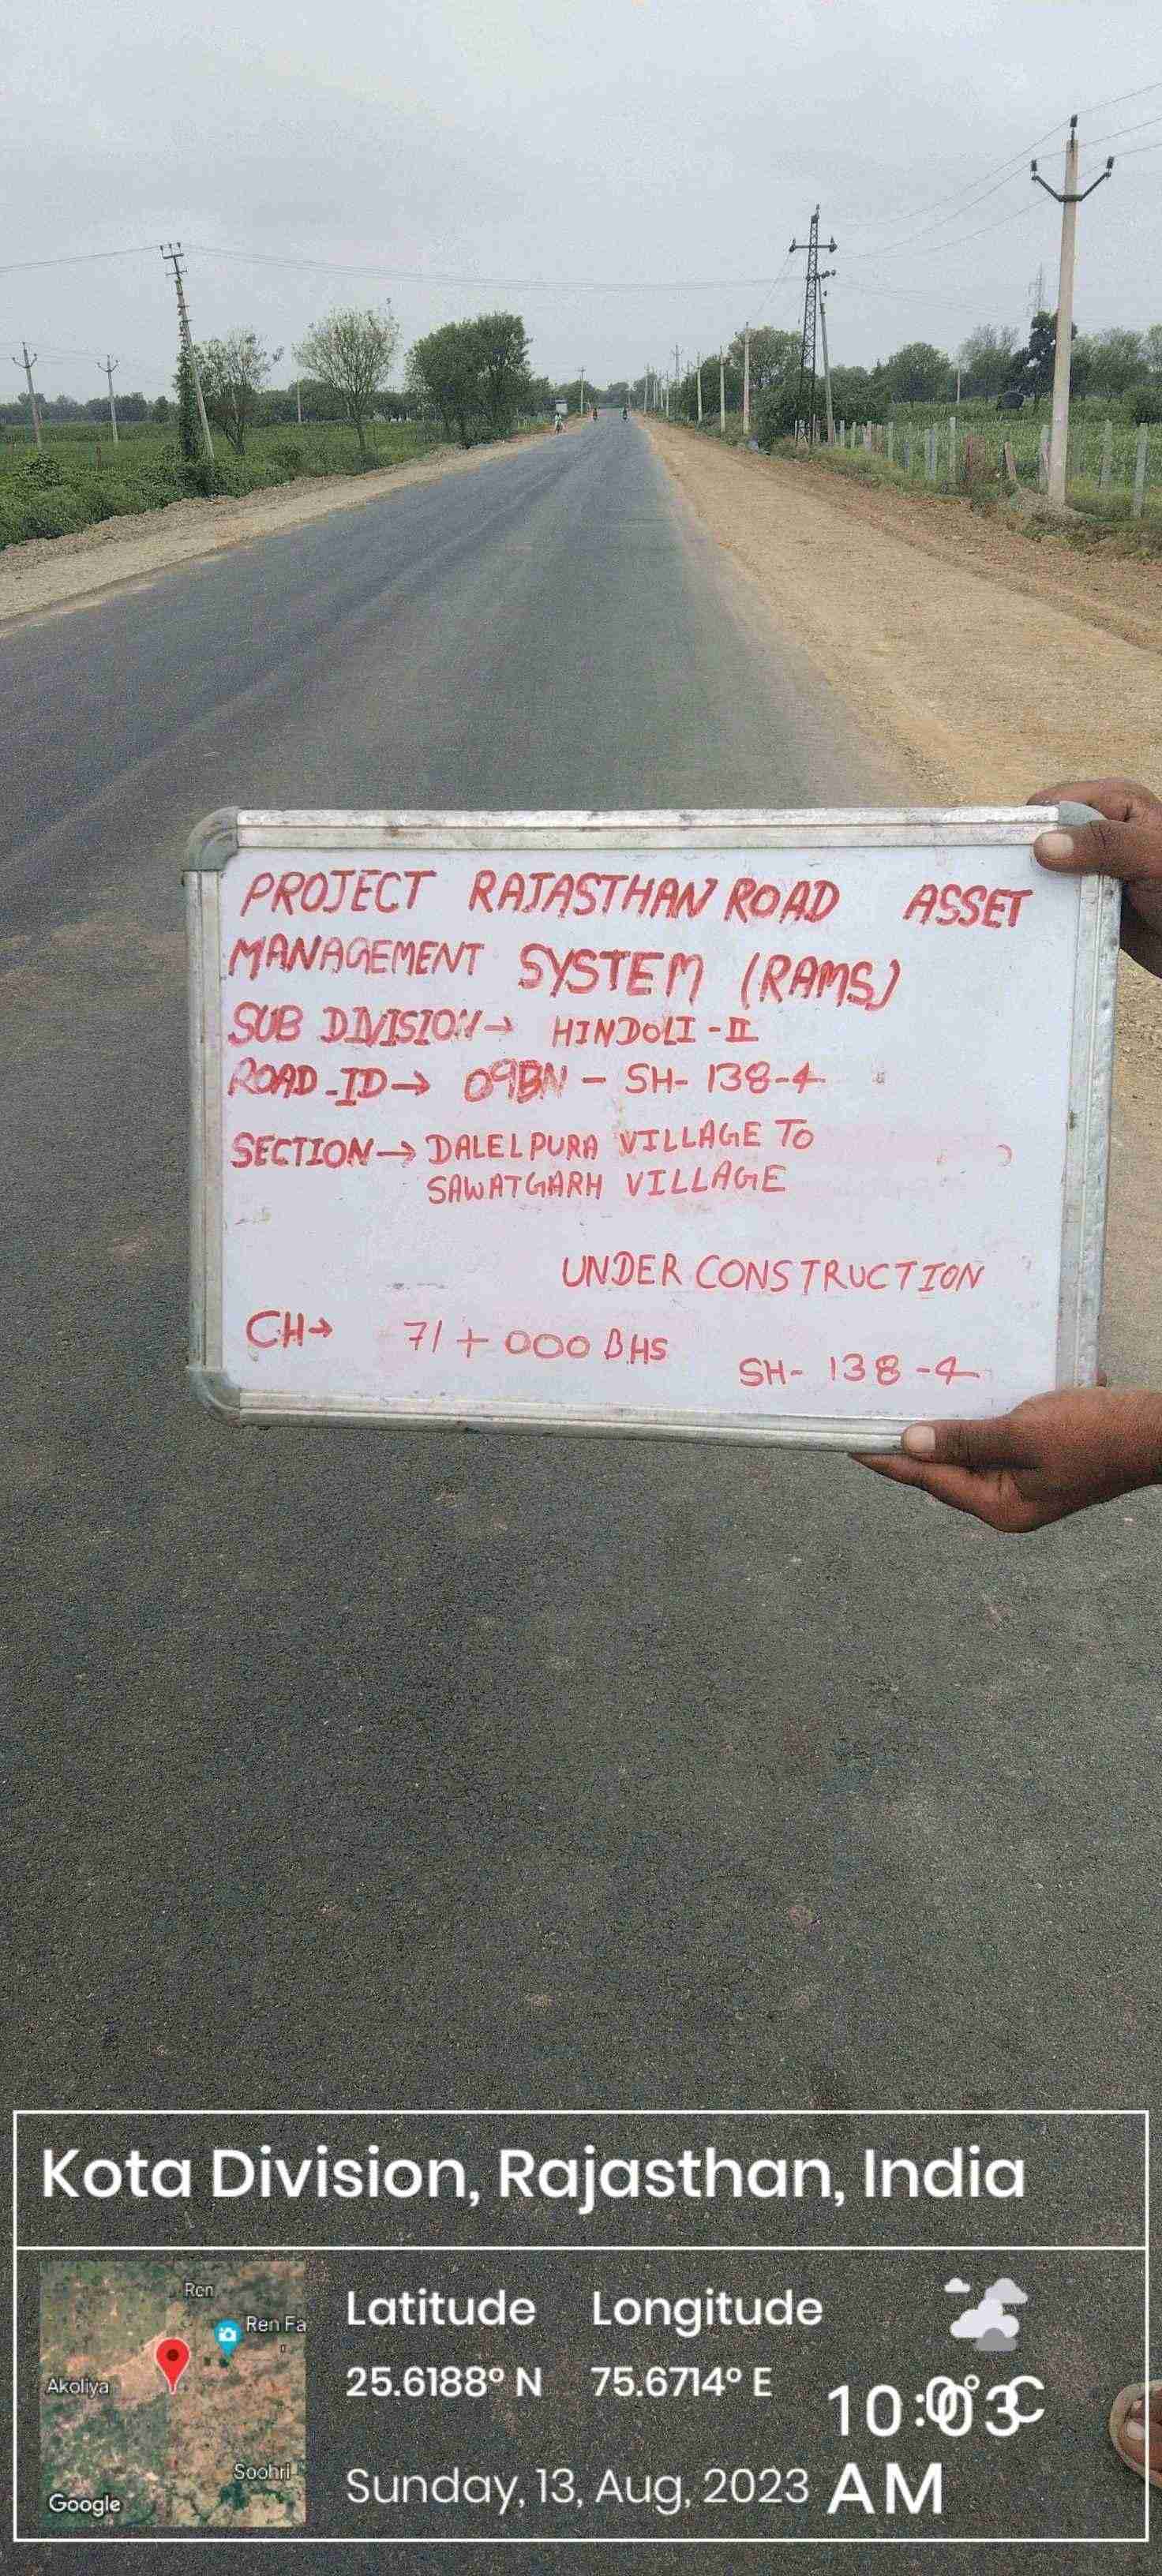 PROJECT RAJASTHAN ROAD ASSET
MANAGEMENT SYSTEM (RAMS)
SUB DIVISION→ HINDOLI-II
ROAD-ID→ 09BN - SH-138-4
SECTION→ DALELPURA VILLAGE TO
SAWATGARH VILLAGE
UNDER CONSTRUCTION
CH→ 71+000 BHS
SH-138-4
Kota Division, Rajasthan, India
Ren
Ren Fa
Akoliya
Soohri
Google
Latitude Longitude
25.6188° N 75.6714° E
10:03
Sunday, 13, Aug, 2023 AM